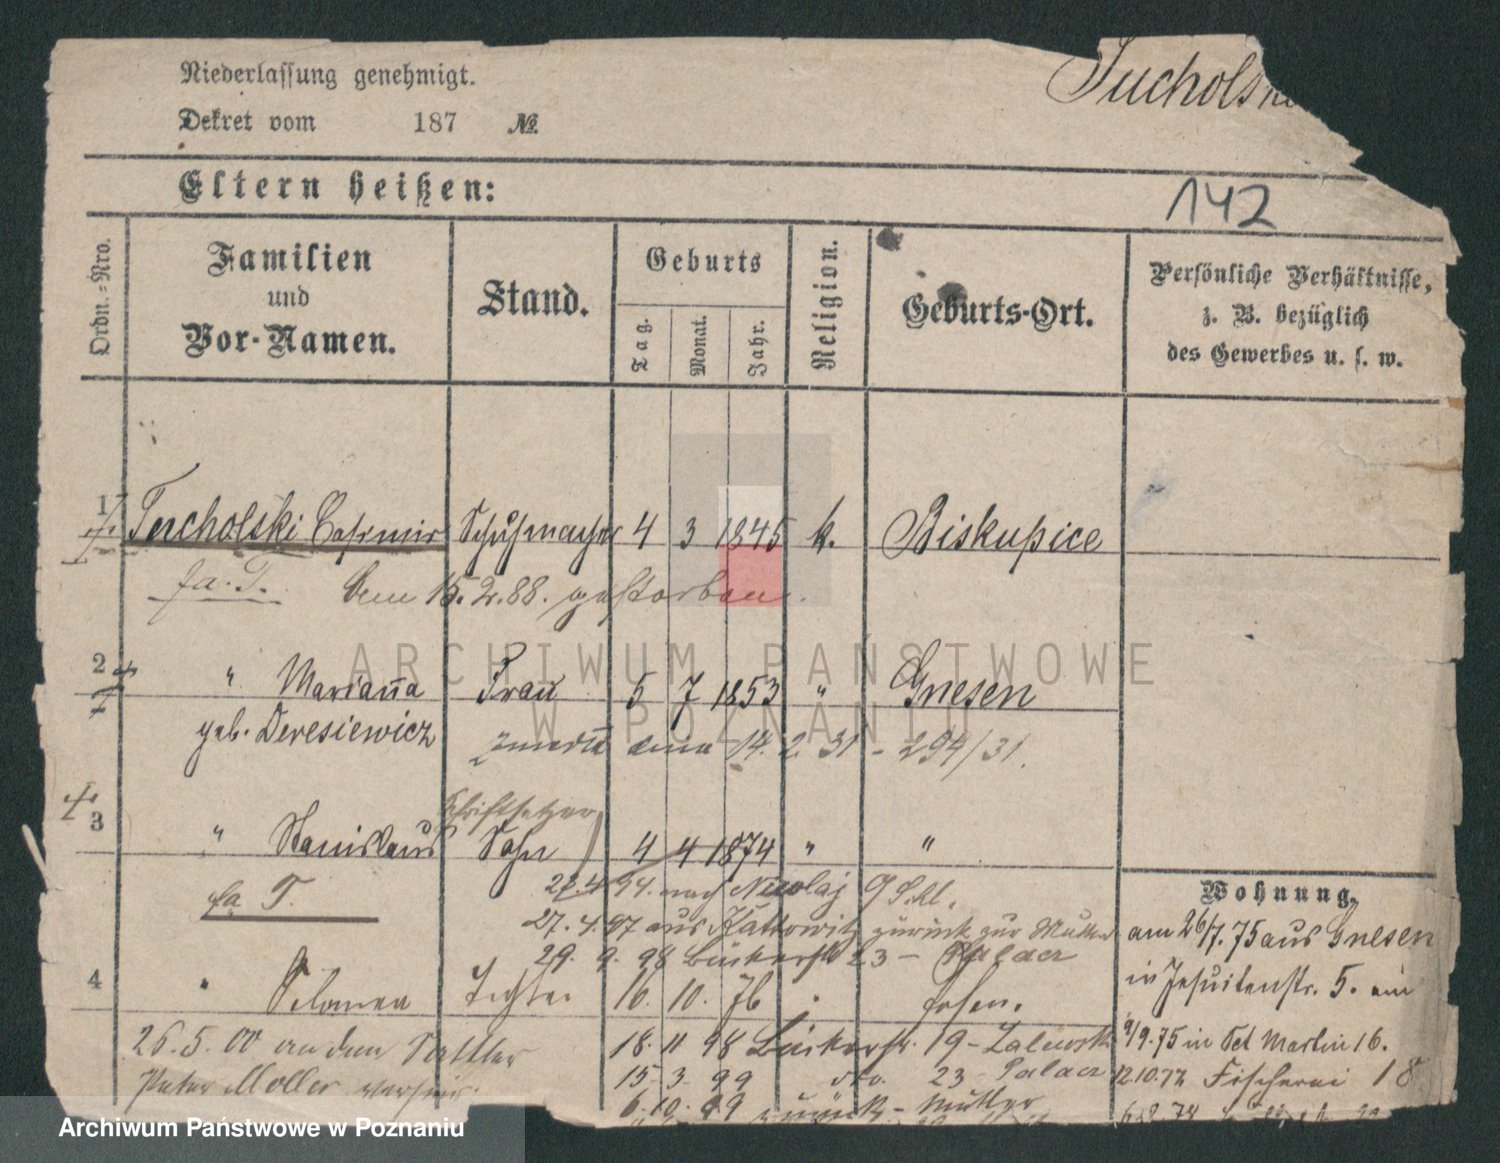 Niederlassung genehmigt.
Tucholski
Dekret vom 187 №
Eltern heißen:
142
Ordn.-Nro.
Familien und Vor-Namen.
Stand.
Geburts
Tag. Monat. Jahr.
Religion.
Geburts-Ort.
Persönliche Verhältnisse,
z. B. bezüglich
des Gewerbes u. s. w.
1 Tucholski Casimir Schuhmacher 4 3 1845 k. Biskupice
fa. T. 15. 2. 88. gestorben.
ARCHIWUM PAŃSTWOWE
W POZNANIU
2 " Marianna Frau 5 7 1853 " Gnesen
geb. Deresiewicz
14. 2. 31 - 294/31.
Schriftsetzer
3 " Stanislaus Sohn 4 4 1874 " "
fa T. 94. nach Nicolaj
27. 4. 97 aus Kattowitz zurück zur Mutter
29. 9. 98 Bäckerstr 23 -
4 " Tochter 16. 10. 76 " Posen.
26. 5. 00 an den Sattler 18. 11 98 Bäckerstr. 19 - Zalewski
Peter Moller 15. 3. 99 dto. 23
6. 10. 99 zurück - Mutter
Wohnung.
am 26/7. 75 aus Gnesen
in Jesuitenstr. 5. ein
9/9. 75 in Sct Martin 16.
12.10.77 Fischerei 18
Archiwum Państwowe w Poznaniu